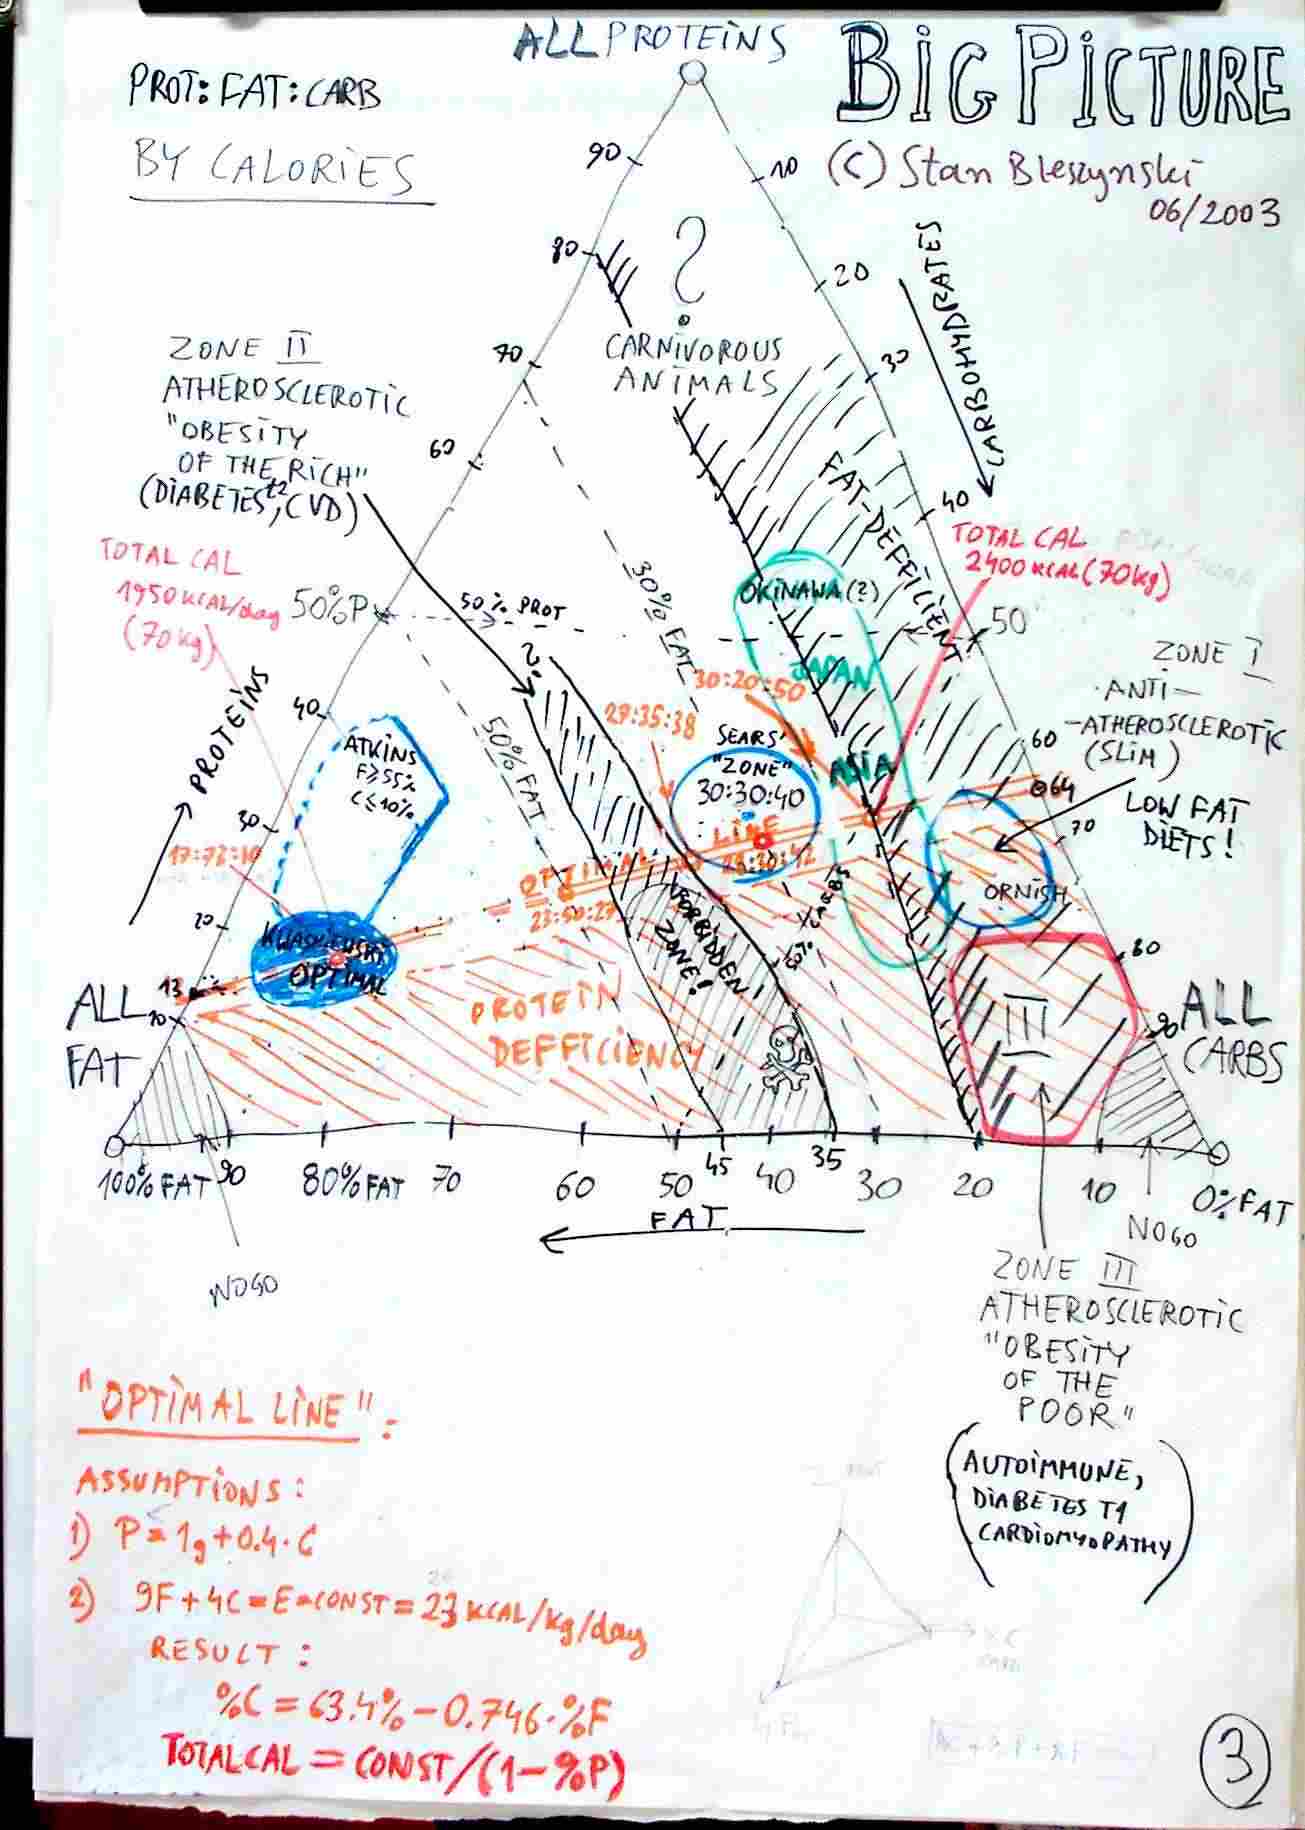 ALL PROTEINS
BIG PICTURE
PROT: FAT: CARB
BY CALORIES
(C) Stan Bleszynski
06/2003
90
10
80
20
?
CARNIVOROUS
ANIMALS
CARBOHYDRATES
ZONE II
ATHEROSCLEROTIC
"OBESITY
OF THE RICH"
(DIABETES t2, CVD)
70
30
60
40
FAT-DEFFICIENT
TOTAL CAL
1950 KCAL/day
(70kg)
TOTAL CAL
2400 KCAL (70kg)
50%P
50% PROT
30% FAT
50
OKINAWA (?)
JAPAN
ASIA
ZONE I
ANTI-
-ATHEROSCLEROTIC
(SLIM)
LOW FAT
DIETS!
PROTEINS
40
ATKINS
F≥55%
C≤10%
?
50% FAT
30:20:50
27:35:38
SEARS'
"ZONE"
30:30:40
60
64
70
30
OPTIMAL LINE
28:30:42
23:50:27
ORNISH
20
KWASNIEWSKI
OPTIMAL
FORBIDDEN
ZONE!
CARBS
80
13
10
ALL
FAT
PROTEIN
DEFFICIENCY
III
90
ALL
CARBS
100% FAT
90
80% FAT
70
60
50
45
40
35
30
20
10
0% FAT
FAT
NOGO
NOGO
ZONE III
ATHEROSCLEROTIC
"OBESITY
OF THE
POOR"
(AUTOIMMUNE,
DIABETES T1
CARDIOMYOPATHY)
"OPTIMAL LINE":
ASSUMPTIONS:
1) P=1g+0.4·C
2) 9F+4C=E=CONST=23 KCAL/kg/day
RESULT:
%C=63.4%-0.746·%F
TOTALCAL=CONST/(1-%P)
3